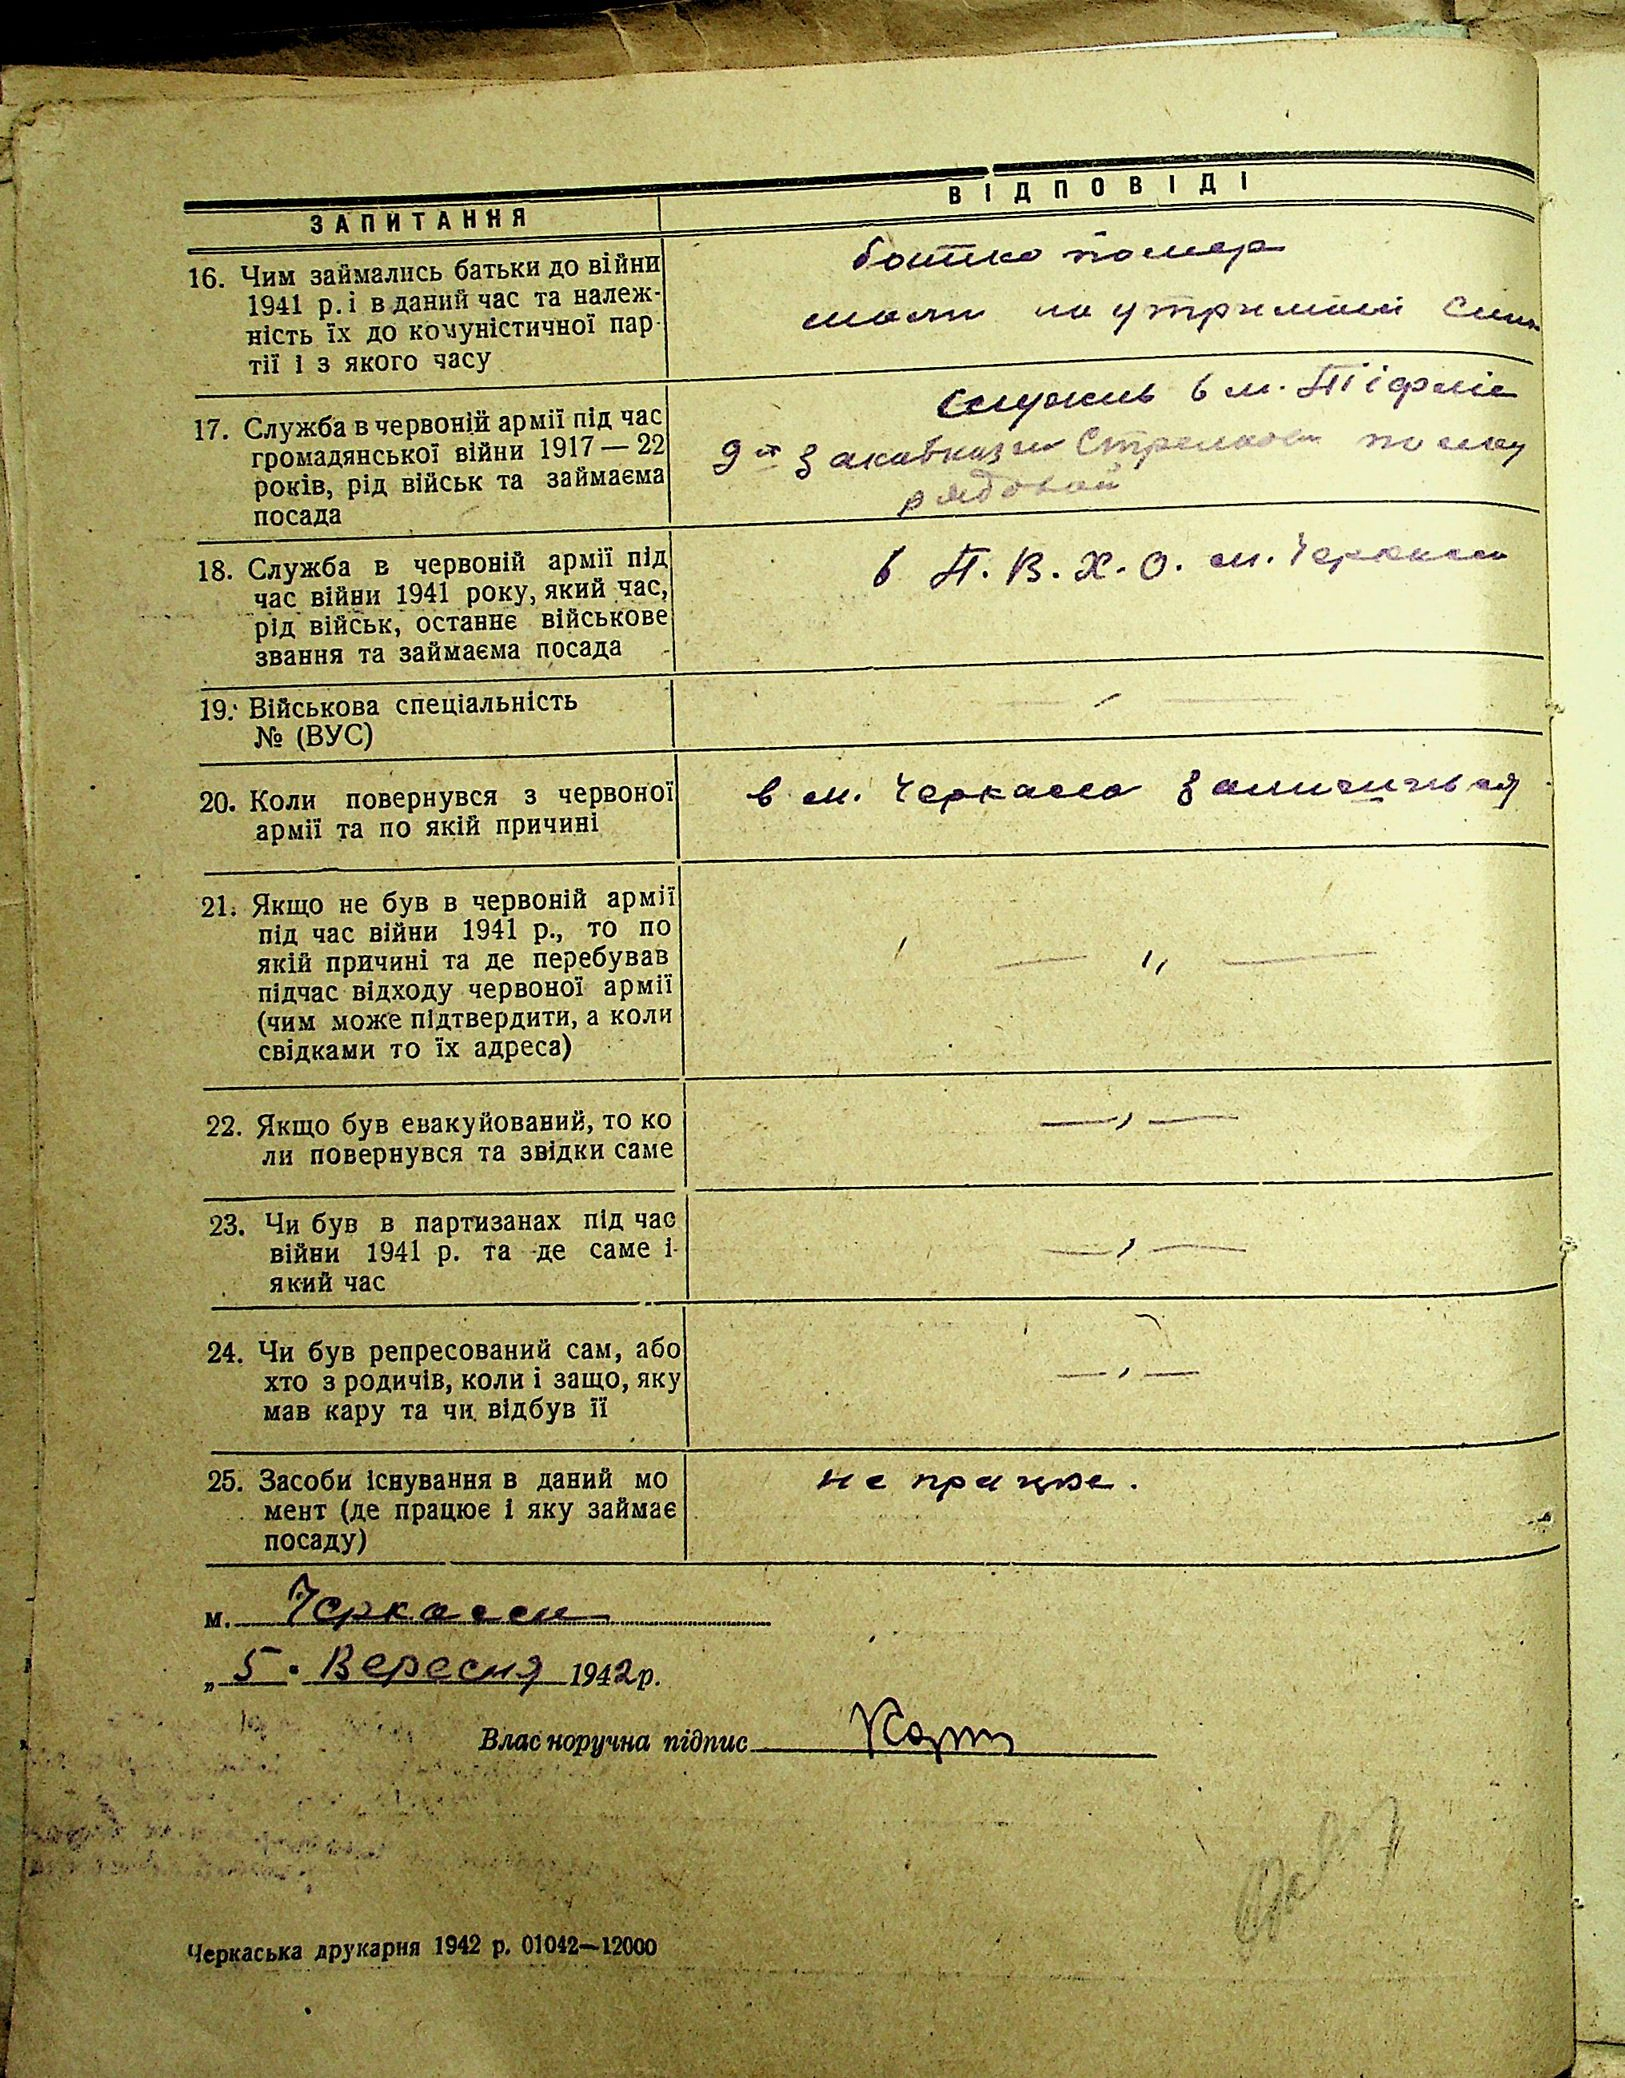 ЗАПИТАННЯ
ВІДПОВІДІ
16. Чим займались батьки до війни
1941 р. і в даний час та належ-
ність їх до комуністичної пар-
тії і з якого часу
батько помер
мати на утримані сина
17. Служба в червоній армії під час
громадянської війни 1917—22
років, рід військ та займаєма
посада
служив в м. Тіфліс
9й Закавказкий Стрелковий
рядовой
18. Служба в червоній армії під
час війни 1941 року, який час,
рід військ, останнє військове
звання та займаєма посада
в П.В.Х.О. м. Черкаси
19. Військова спеціальність
№ (ВУС)
20. Коли повернувся з червоної
армії та по якій причині
в м. Черкаса залишився
21. Якщо не був в червоній армії
під час війни 1941 р., то по
якій причині та де перебував
підчас відходу червоної армії
(чим може підтвердити, а коли
свідками то їх адреса)
22. Якщо був евакуйований, то ко
ли повернувся та звідки саме
23. Чи був в партизанах під час
війни 1941 р. та де саме і
який час
24. Чи був репресований сам, або
хто з родичів, коли і защо, яку
мав кару та чи відбув її
25. Засоби існування в даний мо
мент (де працює і яку займає
посаду)
не працює.
м. Черкасси
„5. Вересня 1942 р.
Власноручна підпис
Черкаська друкарня 1942 р. 01042—12000